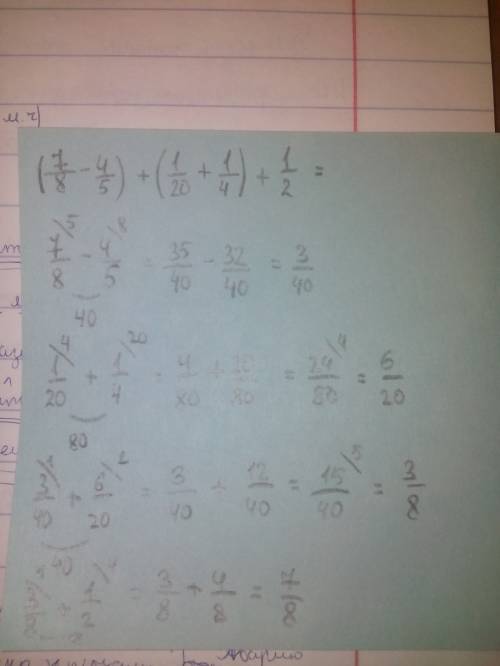 м.ч)
(7/8 - 4/5) + (1/20 + 1/4) + 1/2 =
7/8 /5 - 4/5 /8 = 35/40 - 32/40 = 3/40
40
1/20 /4 + 1/4 /20 = 4/80 + 20/80 = 24/80 /4 = 6/20
80
3/40 /1 + 6/20 /2 = 3/40 + 12/40 = 15/40 /5 = 3/8
40
3/8 + 1/2 = 3/8 + 4/8 = 7/8